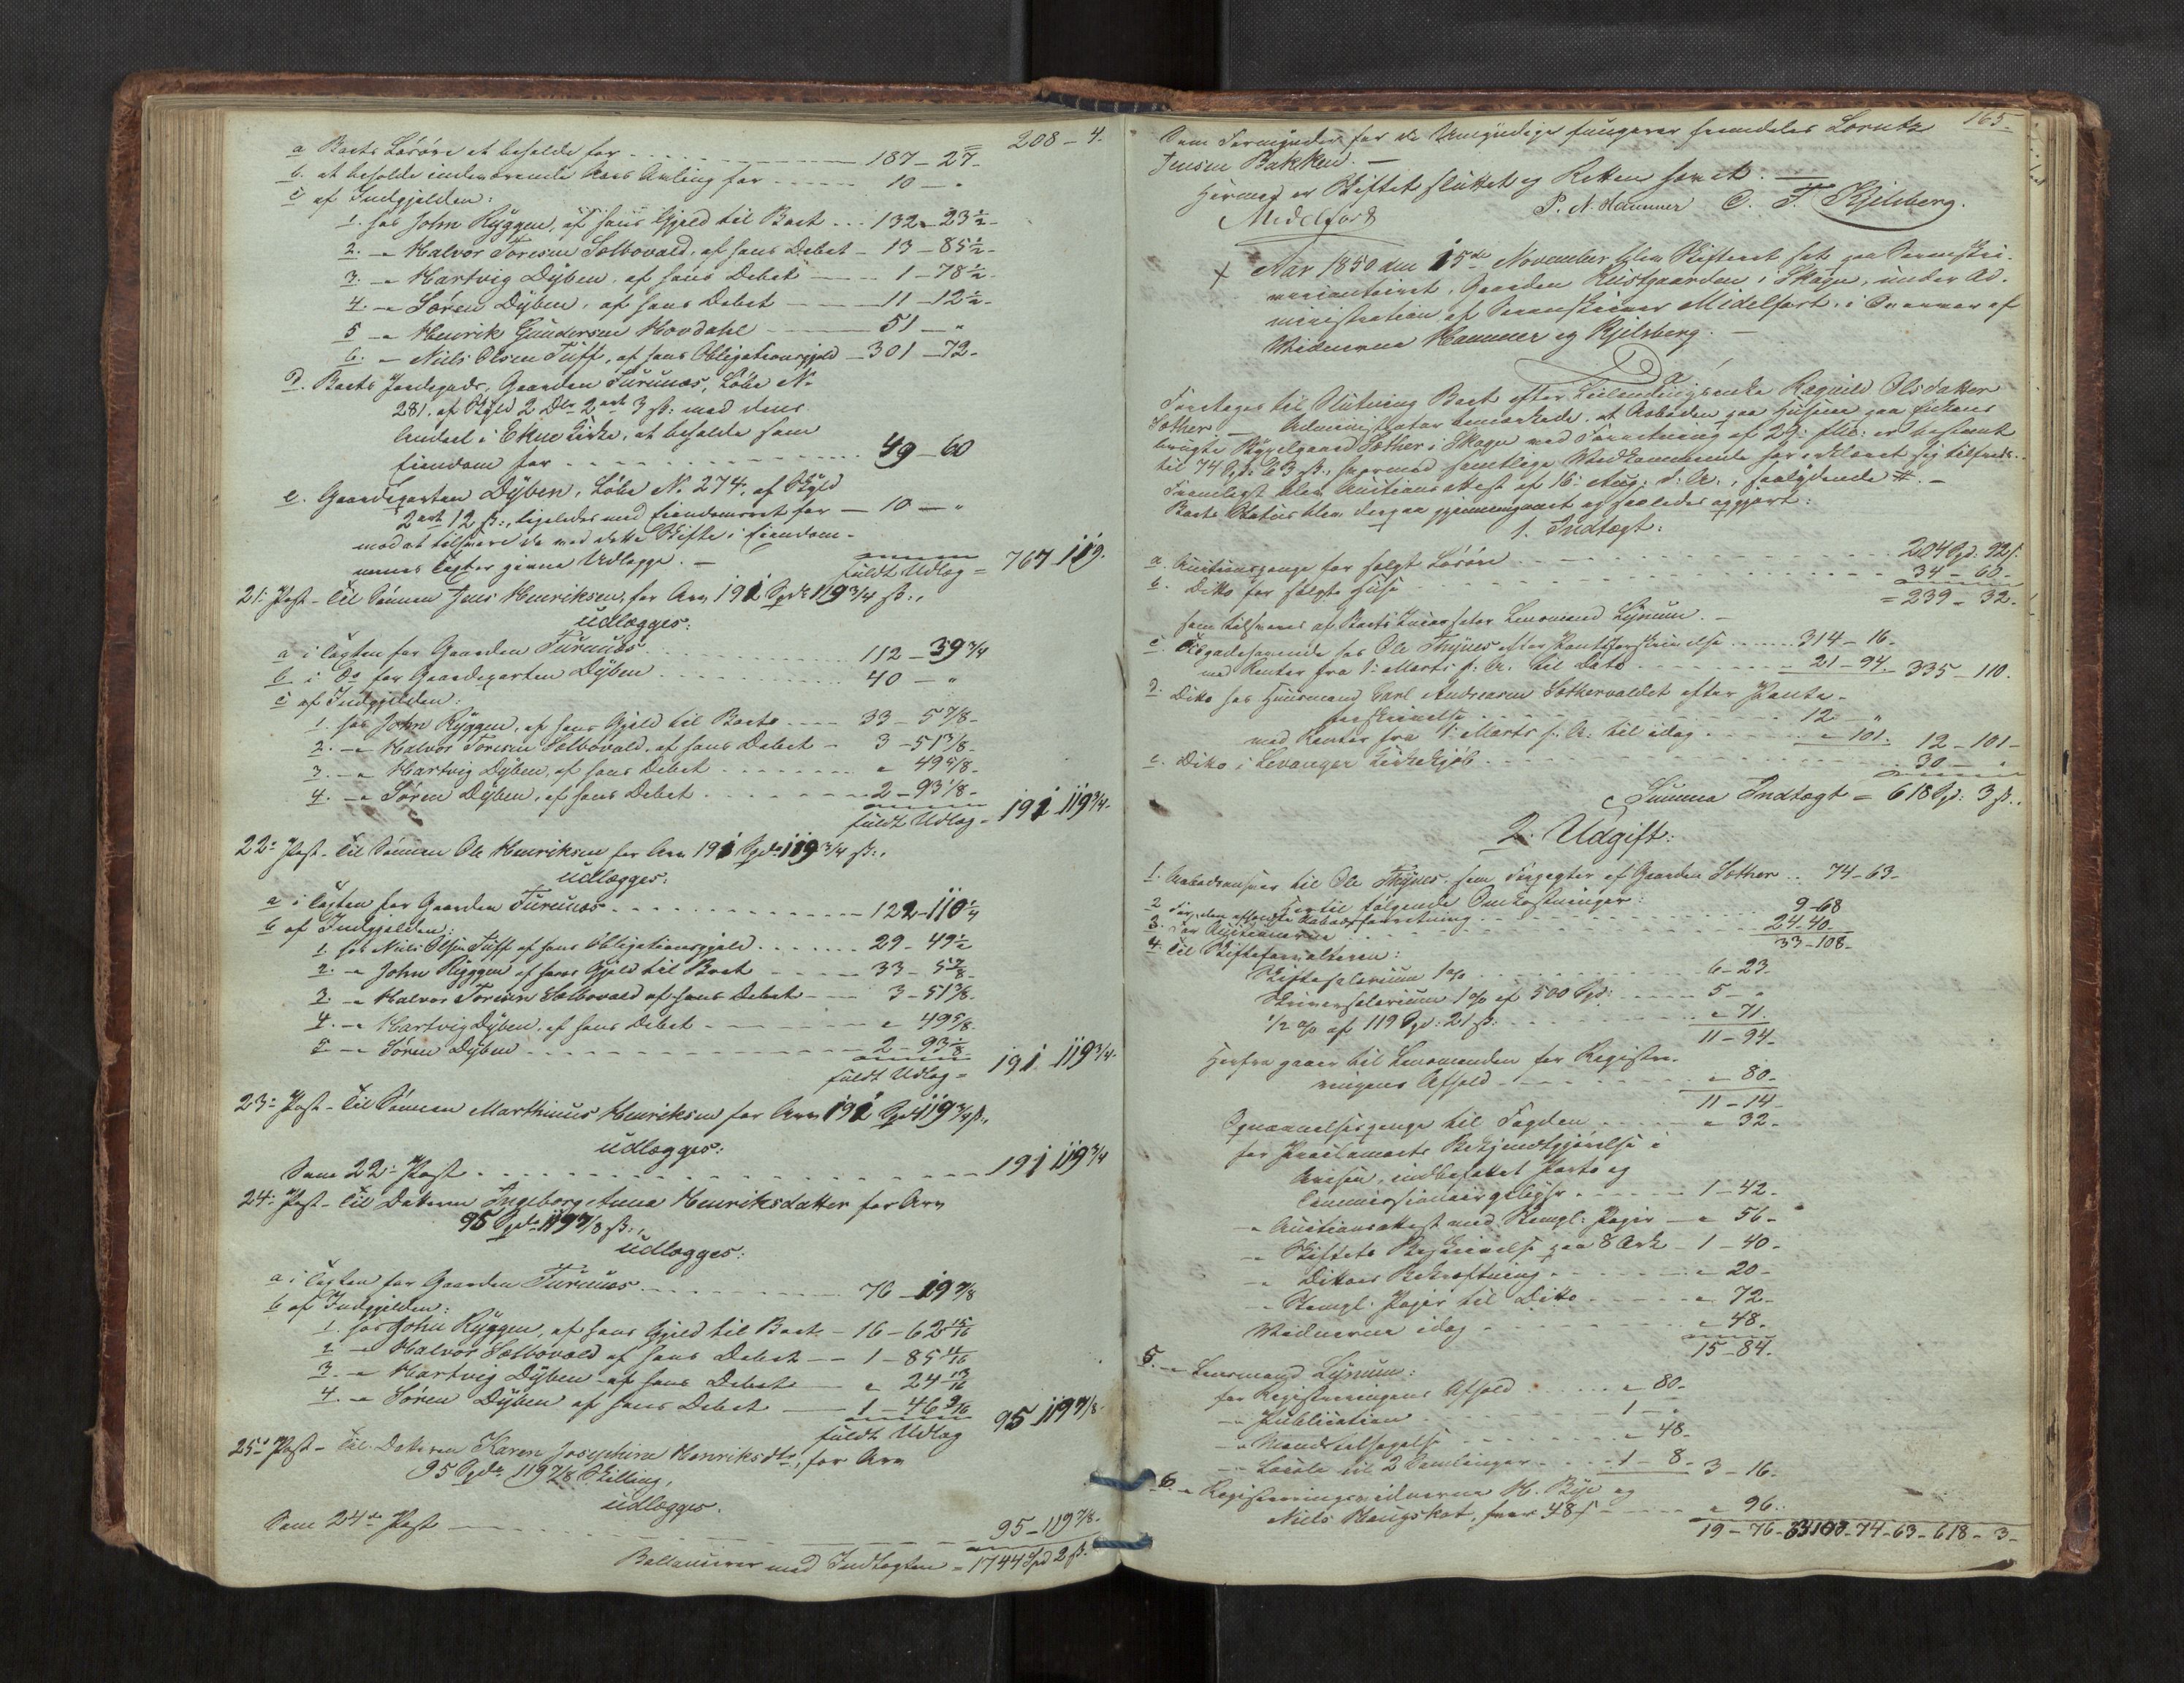 208 – 4.
a Boets Løsøre at beholde for 187 – 27
b. at beholde indeværende Aars Avling for 10 – "
c af Indgjelden:
1. hos John Ryggen, af hans Gjeld til Boet 132 – 23½
2. – Halvor Toresen Solbovald, af hans Debet – 13 – 85½
3. – Hartvig Dyben, af hans Debet 1 – 78½
4. – Søren Dyben, af hans Debet 11 – 12½
5 – Henrik Gundersen Hovdahl 51 – "
6. – Niels Olsen Tuff, af hans Obligationsgjeld – 301 – 72
d. Boets Jordegods, Gaarden Furunæs, Løbe No
281. af Skyld 2 Dlr 2 ort 3 ß: med dens
Andeel i Ekne Kirke, at beholde som
Eiendom for 49 – 60
e. Gaardeparten Dyben, Løbe No. 274, af Skyld
2 ort 12 ß:, ligeledes med Eiendomsret for – 10 – "
mod at tilsvare de ved dette Skifte i Eiendom-
menes Taxter givne Udlægge. –
fuldt Udlæg = 767 119.
21: Post – Til Sønnen Jens Henriksen, for Arv 191 Spd 119 3/4 ß:,
udlægges:
a i Taxten for Gaarden Furunæs 112 – 39 3/4
b i Do for Gaardeparten Dyben 40 – "
c af Indgjelden:
1. hos John Ryggen, af hans Gjeld til Boet 33 – 5 7/8
2. – Halvor Toresen Solbovald, af hans Debet – 3 – 51 3/8
3. – Hartvig Dyben, af hans Debet " 49 5/8
4. – Søren Dyben, af hans Debet 2 – 93 1/8
fuldt Udlæg = 191 119 3/4
22: Post – Til Sønnen Ole Henriksen for Arv 191 Spd 119 3/4 ß:,
udlægges:
a i Taxten for Gaarden Furunæs 122 – 110 1/4
b af Indgjelden:
1. hos Niels Olsen Tuff af hans Obligationsgjeld 29 – 49½
2. – John Ryggen af hans Gjeld til Boet 33 – 5 7/8
3. – Halvor Toresen Solbovald af hans Debet 3 – 51 3/8
4. – Hartvig Dyben, af hans Debet " 49 5/8
5 – Søren Dyben 2 – 93 1/8
fuldt Udlæg = 191 119 3/4
23: Post – Til Sønnen Marthinus Henriksen for Arv 191 Spd 119 3/4 ß:,
udlægges:
Som 22: Post 191 119 3/4
24: Post – Til Datteren Ingeborg Anna Henriksdatter for Arv
95 Spd 119 7/8 ß:,
udlægges:
a i Taxten for Gaarden Furunæs 76 – 19 7/8
b af Indgjelden:
1. hos John Ryggen, af hans Gjeld til Boet – 16 – 62 15/16
2. – Halvor Solbovald af hans Debet 1 – 85 11/16
3. – Hartvig Dyben af hans Debet " 24 13/16
4. – Søren Dyben af hans Debet 1 – 46 9/16
fuldt Udlæg 95 119 7/8
25: Post – Til Datteren Karen Josephine Henriksdtr, for Arv
95 Spd 119 7/8 Skilling,
udlægges.
Som 24de Post 95 – 119 7/8
Ballancerer med Indtægten = 1744 Spd 2 ß.
165.
Som Formynder for de Umyndige fungerer fremdeles Lorntz
Jensen Bakken. –
Hermed er Skiftet sluttet og Retten hævet. –
Midelfart P. N. Hammer O. T. Kjelsberg.
+ Aar 1850 den 15de November blev Skifteret sat paa Sorenskri-
vercontoiret, Gaarden Rustgaarden i Skogn, under Ad-
ministration af Sorenskriver Midelfart, i Overvær af
Vidnerne Hammer og Kjelsberg. –
Foretages til Slutning Boet efter Leilændingsenke Ragnild Olsdatter
Sæther – Administrator bemærkede, at Aaboden paa Husene paa Enkens
brugte Bygselgaard Sæther i Skogn ved Forretning af 29: f. M: er bestemt
til 74 Spd 63 ß:, hvormed samtlige Vedkommende har erklæret sig tilfreds. –
Fremlagt blev Auctionsattest af 16: Aug: d: A:, saalydende #. –
Boets Status blev derpaa gjennemgaaet og saaledes opgjort:
1. Indtægt:
a. Auctionspenge for solgt Løsøre 204 Spd: 92 ß.
b. Ditto for solgte Huse 34 – 60
= 239 – 32.
som tilsvares af Boets Incassator Lensmand Lynum. –
c. Tilgodehavende hos Ole Thynes efter Pantforskrivelse 314 – 16.
med Renter fra 1: Marts f: A: til Dato 21 – 94. 335 – 110.
d. Ditto hos Huusmand Carl Andreasen Sæthervaldet efter Pante-
forskrivelse 12 – "
med Renter fra 1: Marts f: A: til idag " 101. 12 – 101
e. Ditto i Levanger Kirkekjøb 30 – "
Summa Indtægt = 618 Spd: 3 ß.
2. Udgift:
1. Aabodsansvar til Ole Thynes, som Forpagter af Gaarden Sæther 74 – 63
Hertil følgende Omkostninger:
2 For den afholdte Aabodsforretning 9 – 68
3. For Auctionerne 24 – 40
33 – 108
4. Til Skifteforvalteren:
Skiftesalarium 1 % 6 – 23
Skriversalarium 1 % af 500 Spd: 5 – "
1/2 % af 119 Spd: 21 ß: " 71.
11 – 94
Herfra gaaer til Lensmanden for Registre-
ringens Afhold " 80
11 – 14
Opnævnelsespenge til Fogden " 32
for Proclamaets Bekjendtgjørelse i
Avisen, indbefattet Porto og
Commissionairgebyhr 1 – 42
– Auctionsattest med Stempl: Papir " 56
– Skiftets Beskrivelse paa 8 Ark 1 – 40
– Dittos Bekræftning " 20
– Stempl: Papir til Ditto " 72
Vidnerne idag " 48
15 – 84
5. – Lensmand Lynum:
for Registreringens Afhold " 80
– Publication 1 – "
– Mandstilsigelse " 48
– Locale til 2 Samlinger 1 – 8 3 – 16
6 – Registreringsvidnerne H. Bye og
Niels Haugskot, hver 48 ß " 96
19 – 76 – 33 108 – 74 – 63 – 618 – 3